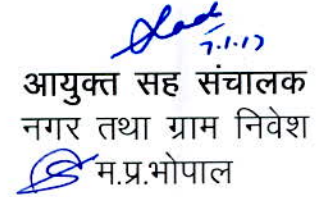 7.1.17
आयुक्त सह संचालक
नगर तथा ग्राम निवेश
म.प्र.भोपाल